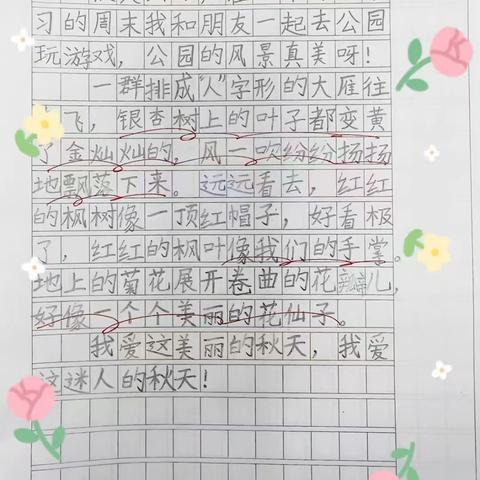 习的周末我和朋友一起去公园
玩游戏，公园的风景真美呀！
一群排成“人”字形的大雁往
飞，银杏树上的叶子都变黄
了金灿灿的，风一吹纷纷扬扬
地飘落下来。远远看去，红红
的枫树像一顶红帽子，好看极
了，红红的枫叶像我们的手掌。
地上的菊花展开卷曲的花瓣儿，
好像一个个美丽的花仙子。
我爱这美丽的秋天，我爱
这迷人的秋天！